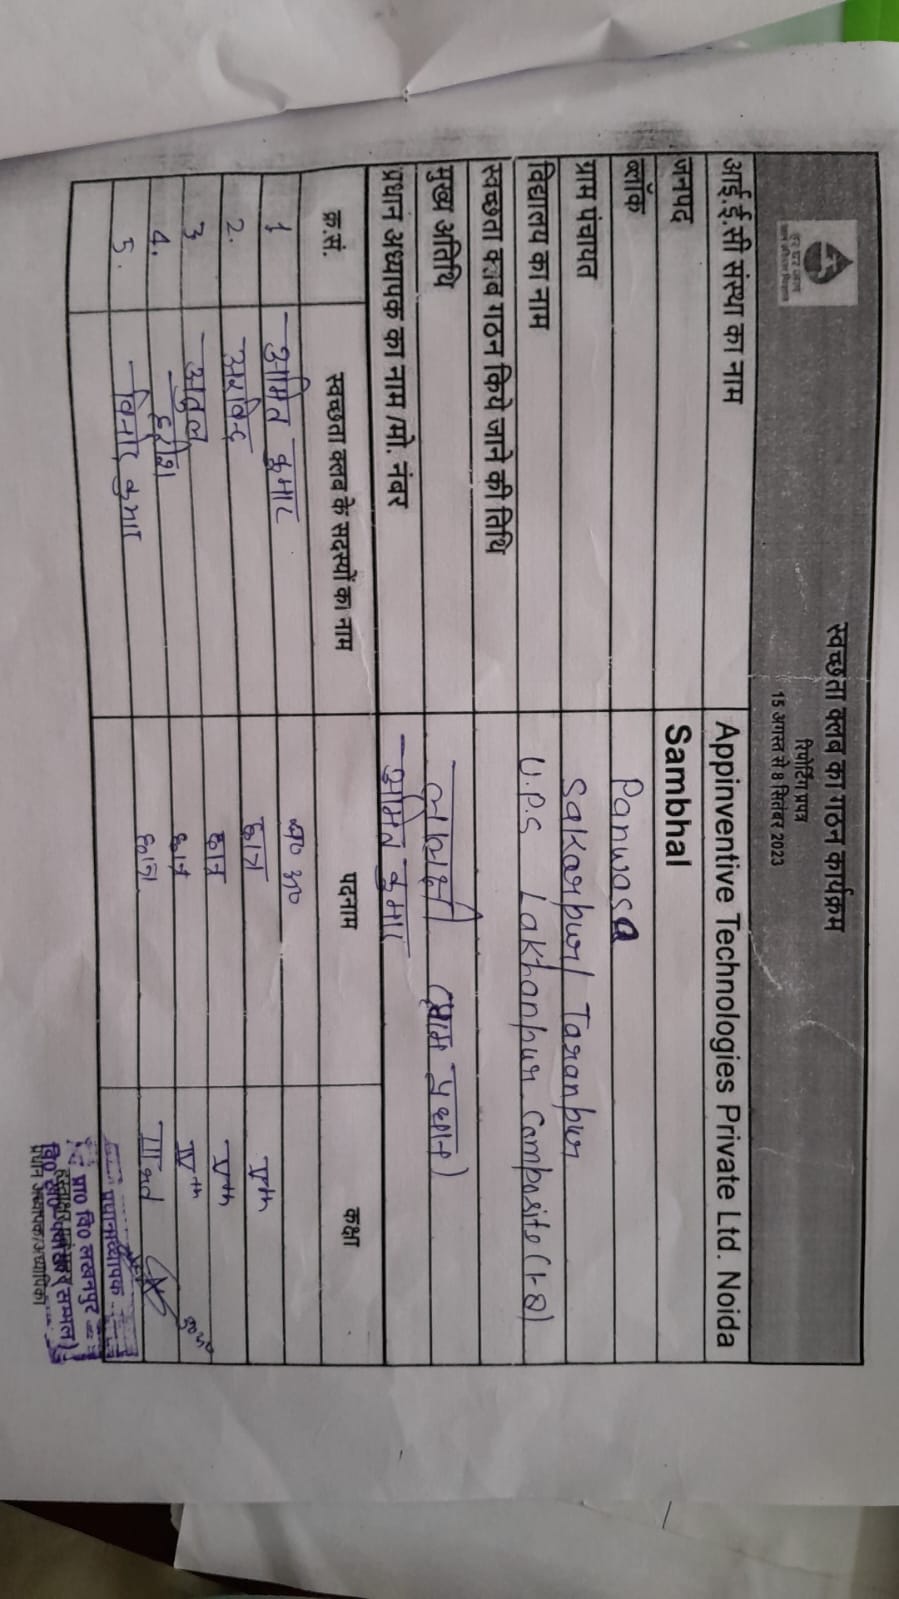 स्वच्छता क्लब का गठन कार्यक्रम
रिपोर्टिंग प्रपत्र
15 अगस्त से 8 सितंबर 2023
आई.ई.सी संस्था का नाम Appinventive Technologies Private Ltd. Noida
जनपद Sambhal
ब्लॉक Panwasa
ग्राम पंचायत Sakarpur/ Taranpur
विद्यालय का नाम U.P.S Lakhanpur Composite (1-8)
स्वच्छता क्लब गठन किये जाने की तिथि
मुख्य अतिथि (ग्राम प्रधान)
प्रधान अध्यापक का नाम /मो. नंबर अमित कुमार
क्र.सं. स्वच्छता क्लब के सदस्यों का नाम पदनाम कक्षा
1 अमित कुमार
2. अरविन्द छात्र Vth
3 अतुल छात्र Vth
4. हरीश छात्र IVth
5. विनोद कुमार छात्र III
प्रधानाध्यापक
प्रा० वि० लखनपुर
प्रधान अध्यापक/अध्यापिका